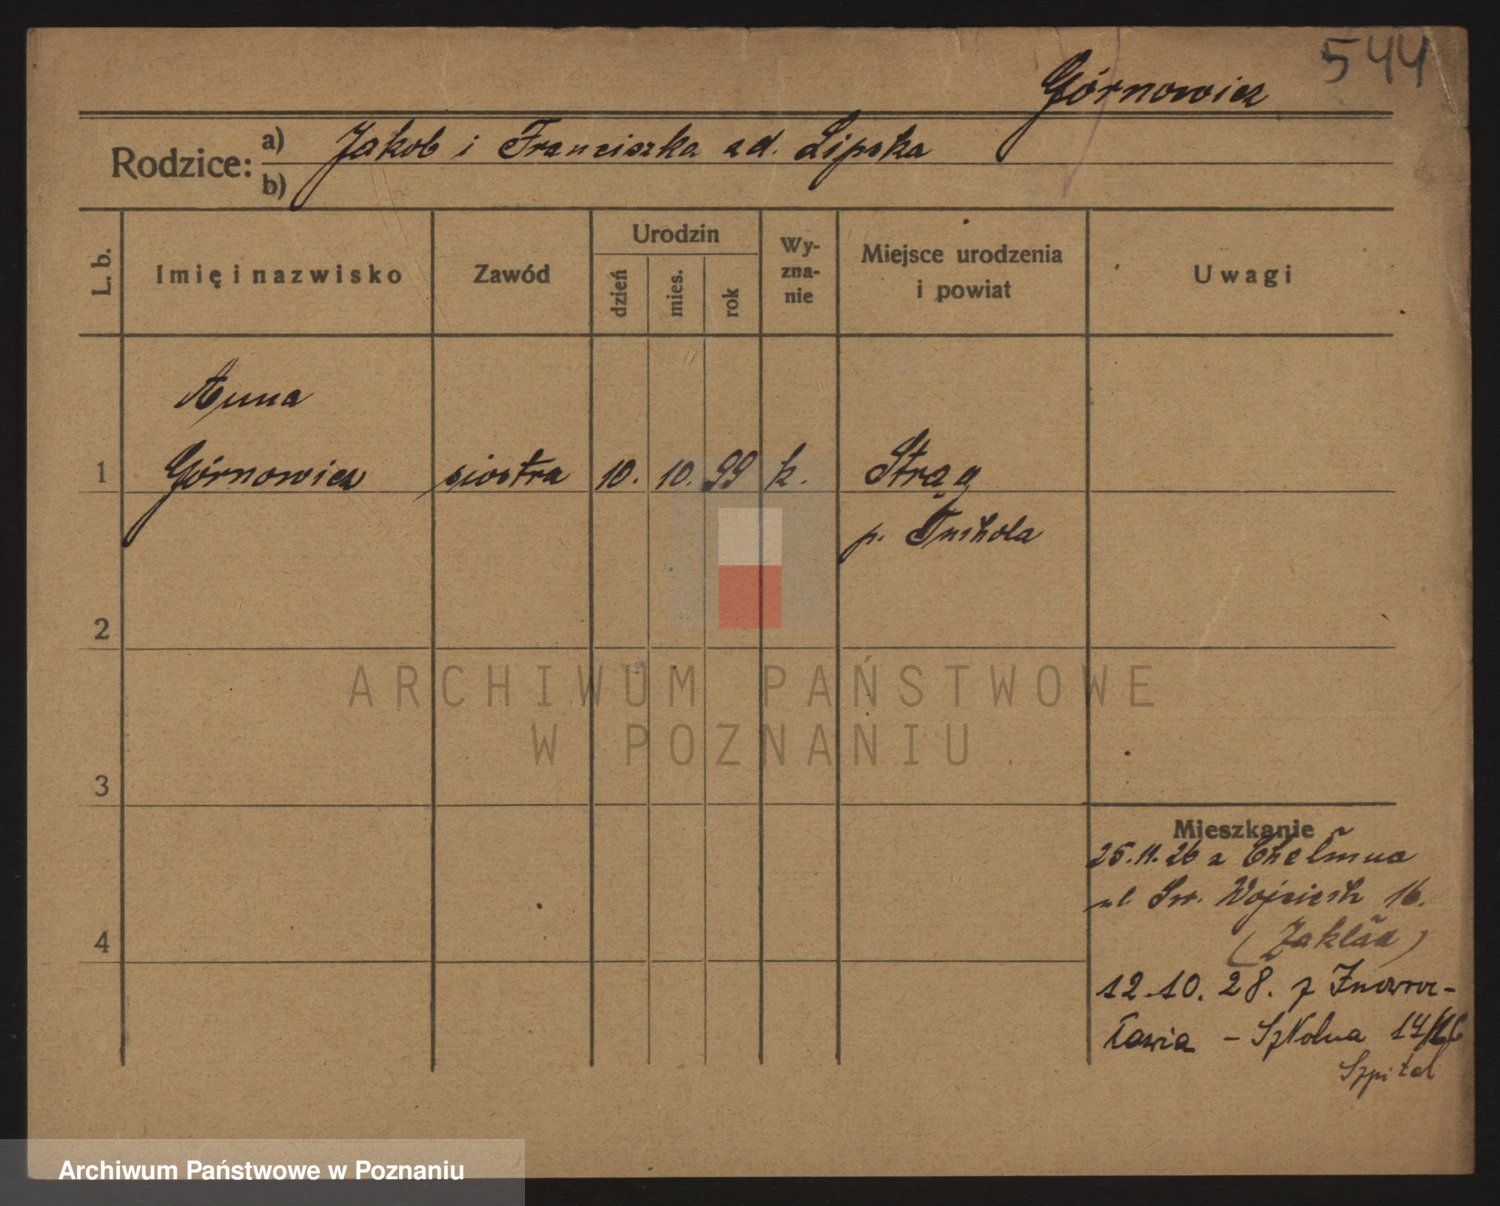 544
Górnowicz
Rodzice:
a) Jakob i Franciszka zd. Lipska
b)
L. b.
Imię i nazwisko
Zawód
Urodzin
dzień
mies.
rok
Wy-
zna-
nie
Miejsce urodzenia
i powiat
Uwagi
Anna
1 Górnowicz siostra 10. 10. 99 k. Strąg
p. Tuchola
2
3
4
Mieszkanie
25.11.26 z Chełmna
ul. Św. Wojciech 16.
(Zakład)
12.10.28. z Inowroc-
ławia - Szkolna 14/16
Szpital
ARCHIWUM PAŃSTWOWE
W POZNANIU
Archiwum Państwowe w Poznaniu